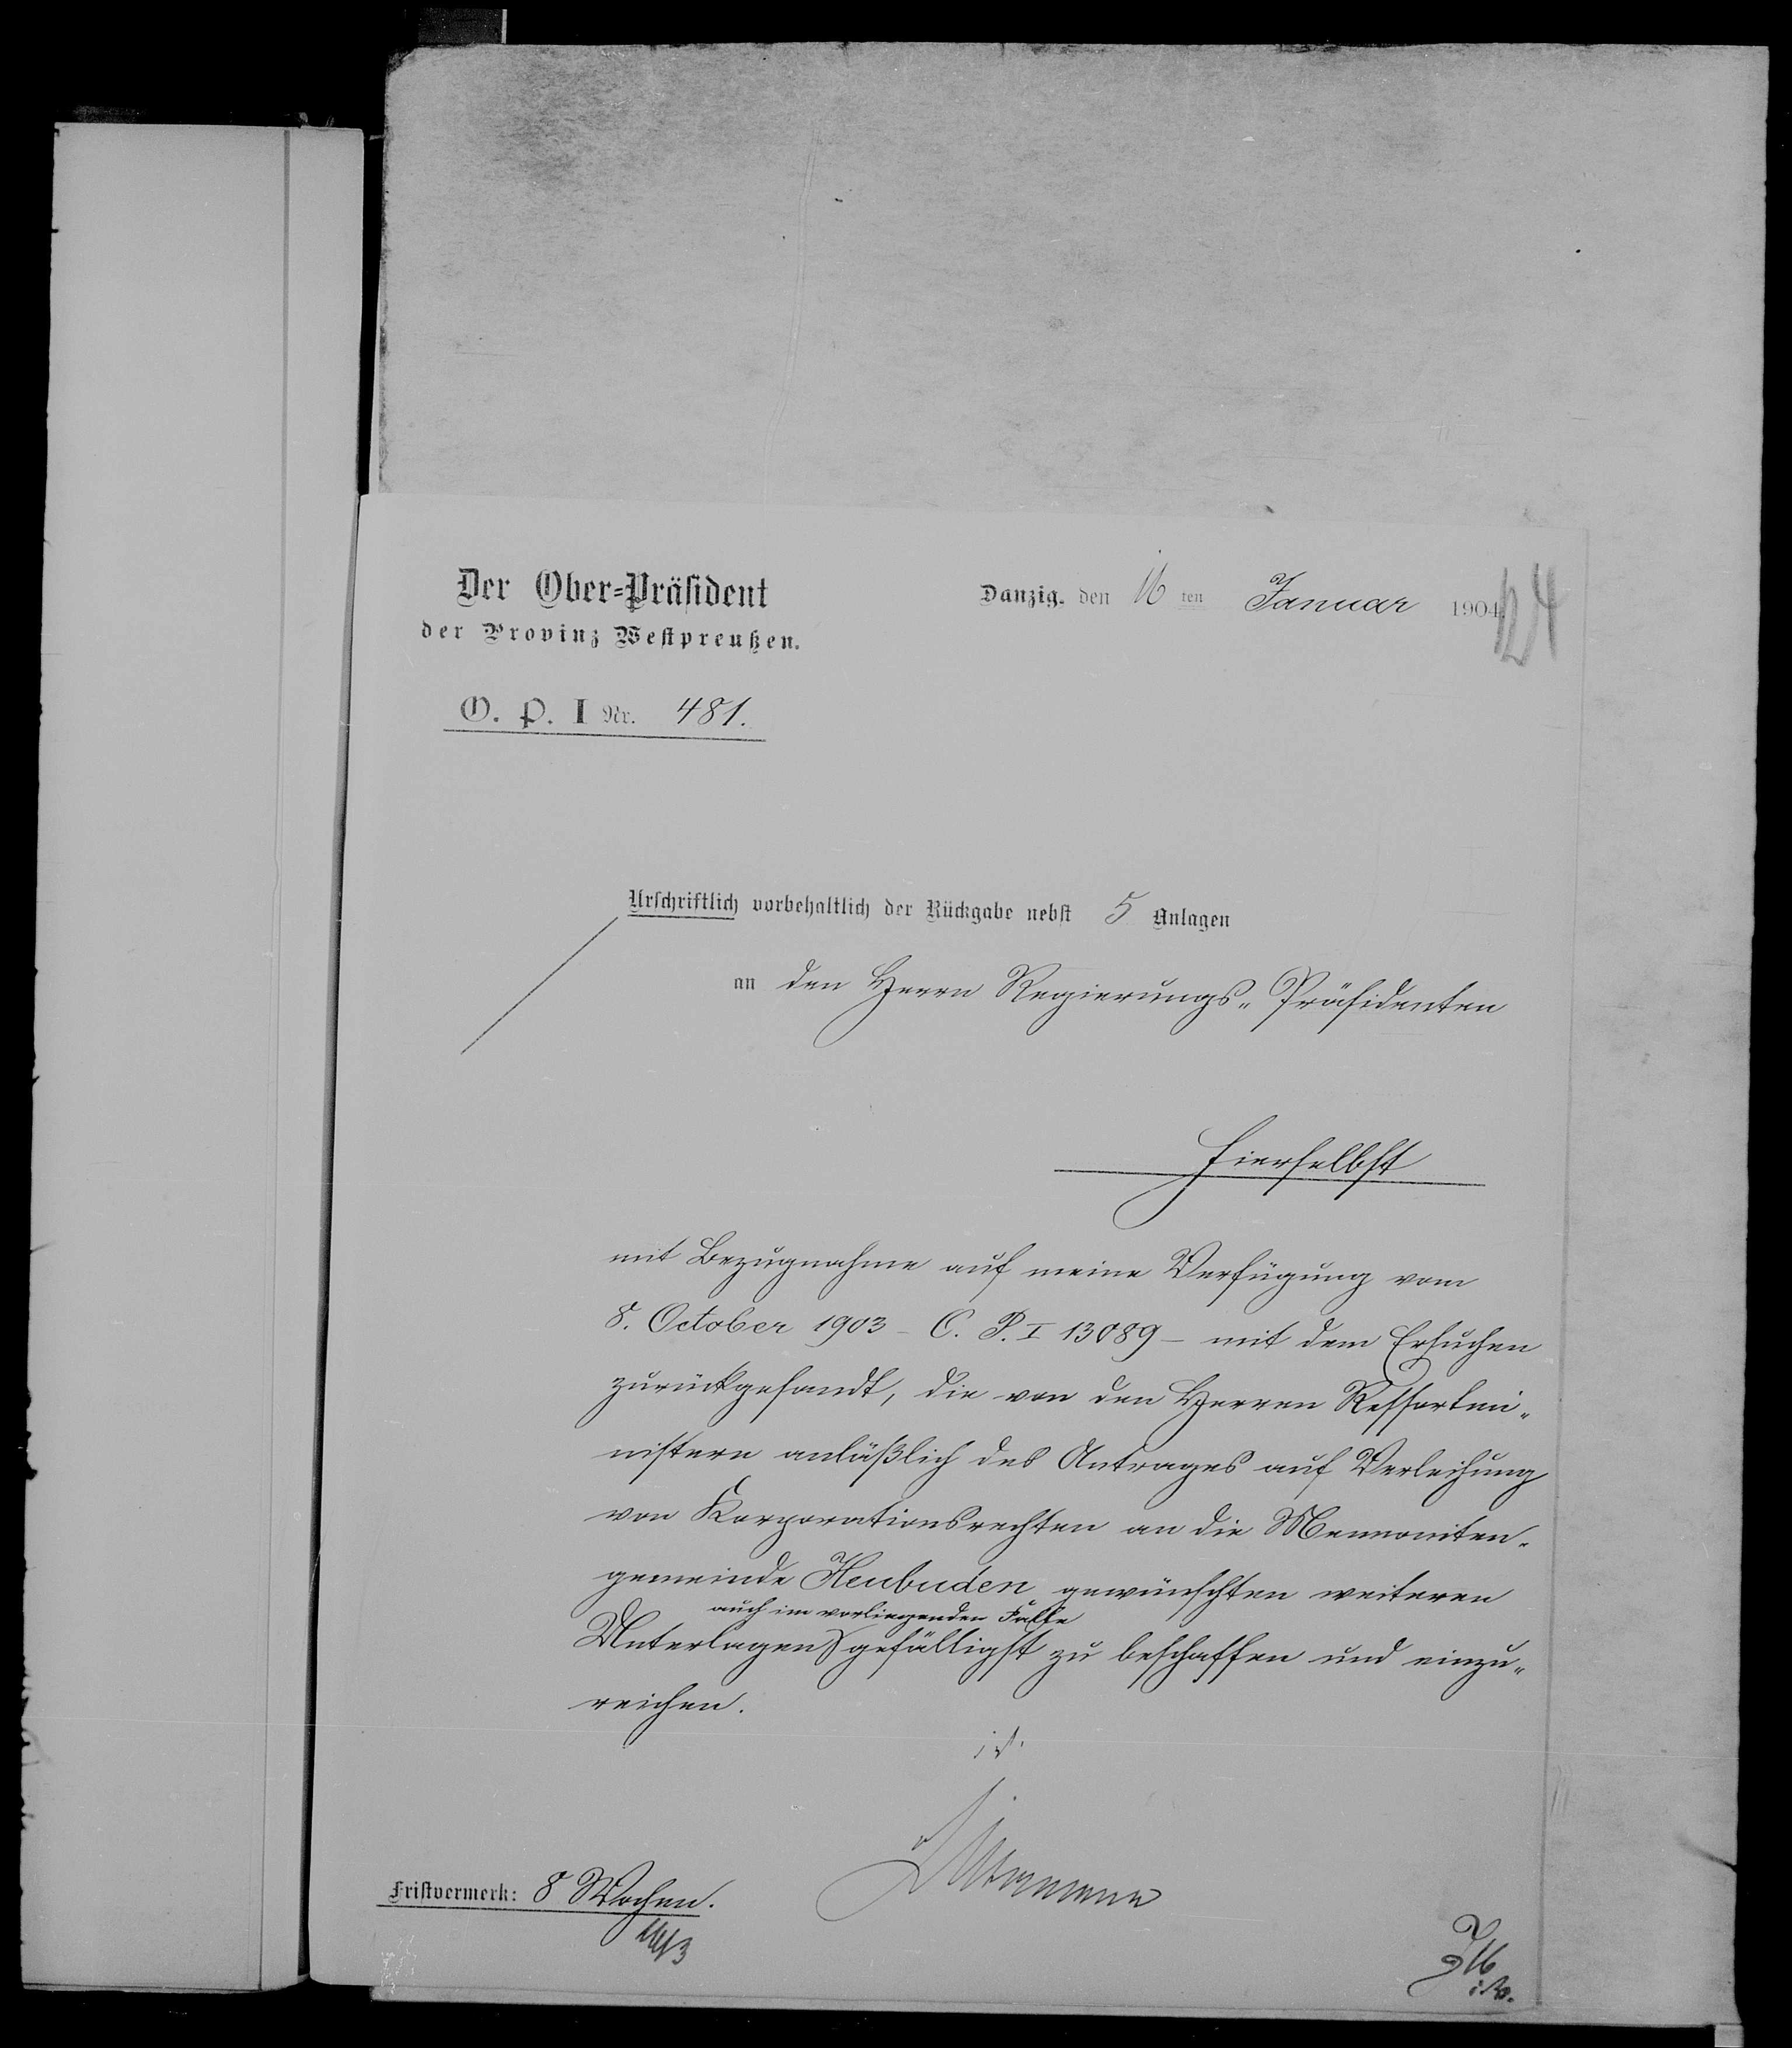 Der Ober-Präsident
der Provinz Westpreußen.
Danzig, den 16 ten Januar 1904.
124
O. P. I Nr. 481.
Urschriftlich vorbehaltlich der Rückgabe nebst 5 Anlagen
an den Herrn Regierungs-Präsidenten
hierselbst
mit Bezugnahme auf meine Verfügung vom
8. October 1903 - O. P. I 13089 - mit dem Ersuchen
zurückgesandt, die von den Herren Ressortmi-
nistern anläßlich des Antrages auf Verleihung
von Korporationsrechten an die Mennoniten-
gemeinde Heubuden gewünschten weiteren
auch im vorliegenden Falle
Unterlagen gefälligst zu beschaffen und einzu-
reichen.
Fristvermerk: 8 Wochen.
16/3